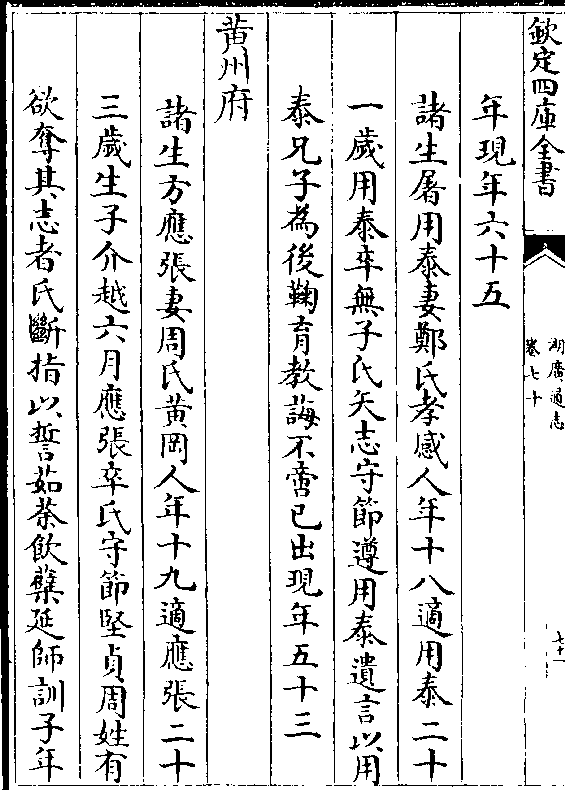 欽定四庫全書
湖廣通志
卷七十
七十一
年現年六十五
諸生屠用泰妻鄭氏孝感人年十八適用泰二十
一歲用泰卒無子氏矢志守節遵用泰遺言以用
泰兄子為後鞠育教誨不啻已出現年五十三
黄州府
諸生方應張妻周氏黄岡人年十九適應張二十
三歲生子介越六月應張卒氏守節堅貞周姓有
欲奪其志者氏斷指以誓茹荼飲蘗延師訓子年